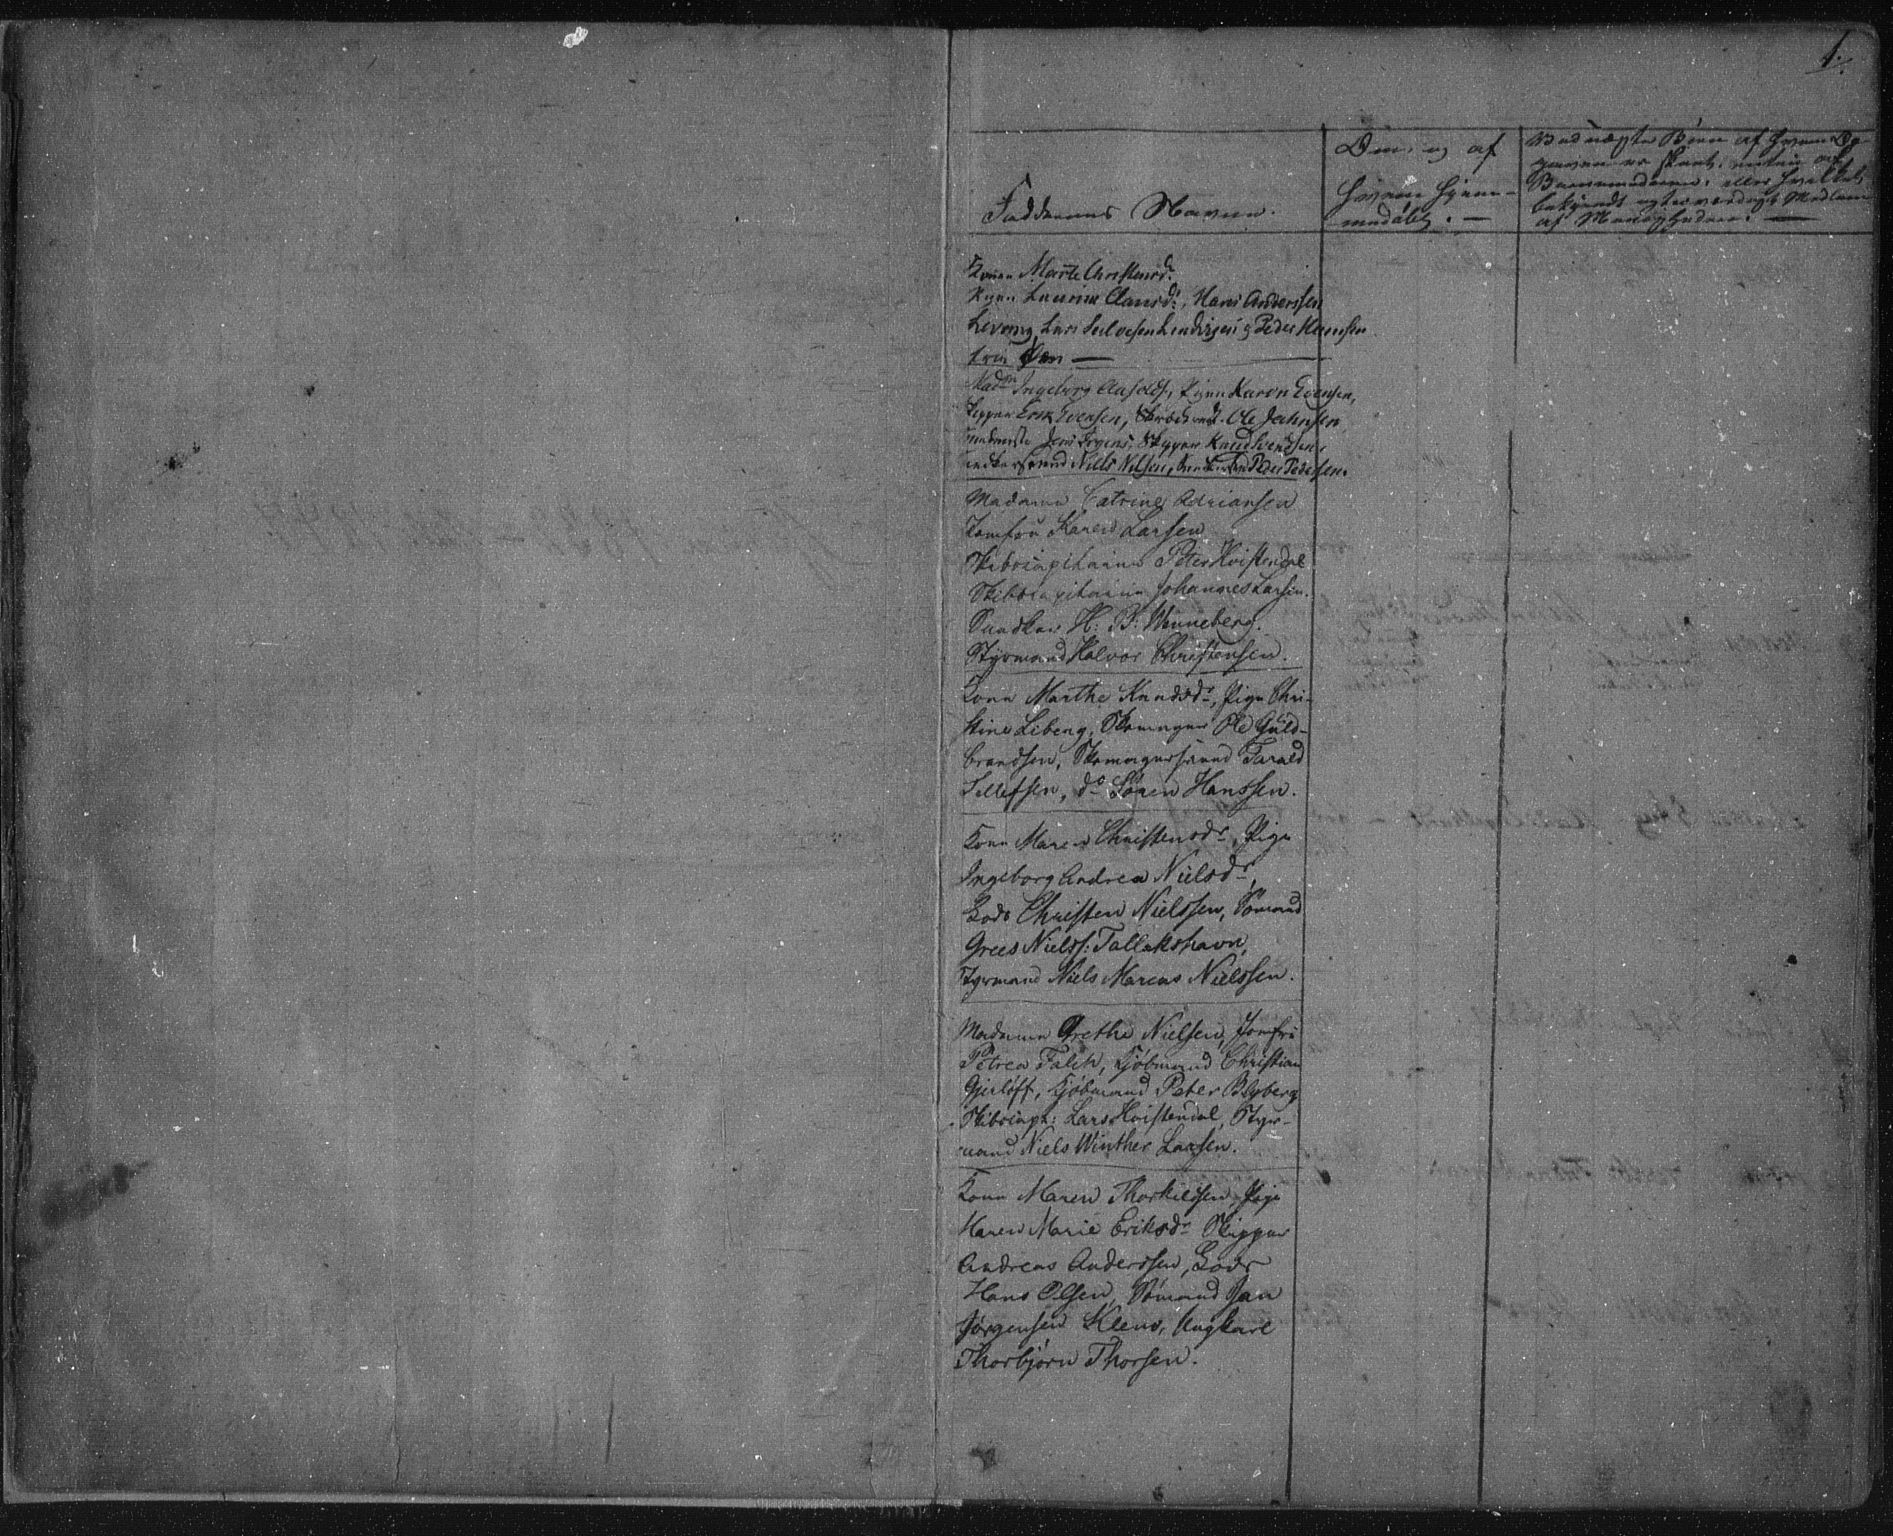 1.
Faddernes Navne.
Om, og af
hvem hjemmedøbt. —
Ved uægte Børn af hvem Opgaven er skeet, enten af
Barnemoderen, eller hvilket
bekjendt agtværdigt Medlem
af Menigheden. —
Konen Marte Christensdr.
Pigen Laurine Clausdr., Hans Anderssen
Peder Hanssen
Madm Ingeborg, Pigen Karen Evensen,
Skipper Erik Evensen, Ole Jahnsen
Jens, Skipper Knud Svendsen,
Niels Nilsen, Peder Pedersen.
Madame Catrine Adriansen
Jomfru Karen Larsen
Skibscapitaine Peter Hvistendal
Skibscapitaine Johannes Larsen.
Snedker H: B: Winneberg.
Styrmand Halvor Christensen.
Kone Marthe Knudsdr, Pige Chri-
stine Liberg, Skomager Ole Guld-
brandsen, Skomagersvend Tarald
Tellefsen, do Søren Hanssen.
Kone Maren Christensdr, Pige
Ingeborg Andrea Nielsdr,
Lods Christen Nielssen, Sømand
Grees Nielss: Tallakshavn,
Styrmand Niels Marcus Nielssen.
Madame Grethe Nielsen, Jomfru
Petrea Falck, Kjøbmand Christian
Gjerløff, Kjøbmand Peter Blyberg
Skibscapt: Lars Hvistendal, Styr-
mand Niels Winther Larsen.
Kone Maren Thorkildsen, Pige
Maren Marie Eriksdr Skipper
Andreas Anderssen, Lods
Hans Olsen, Sømand Jan
Jørgensen Klevs, Ungkarl
Thorbjørn Thorsen.